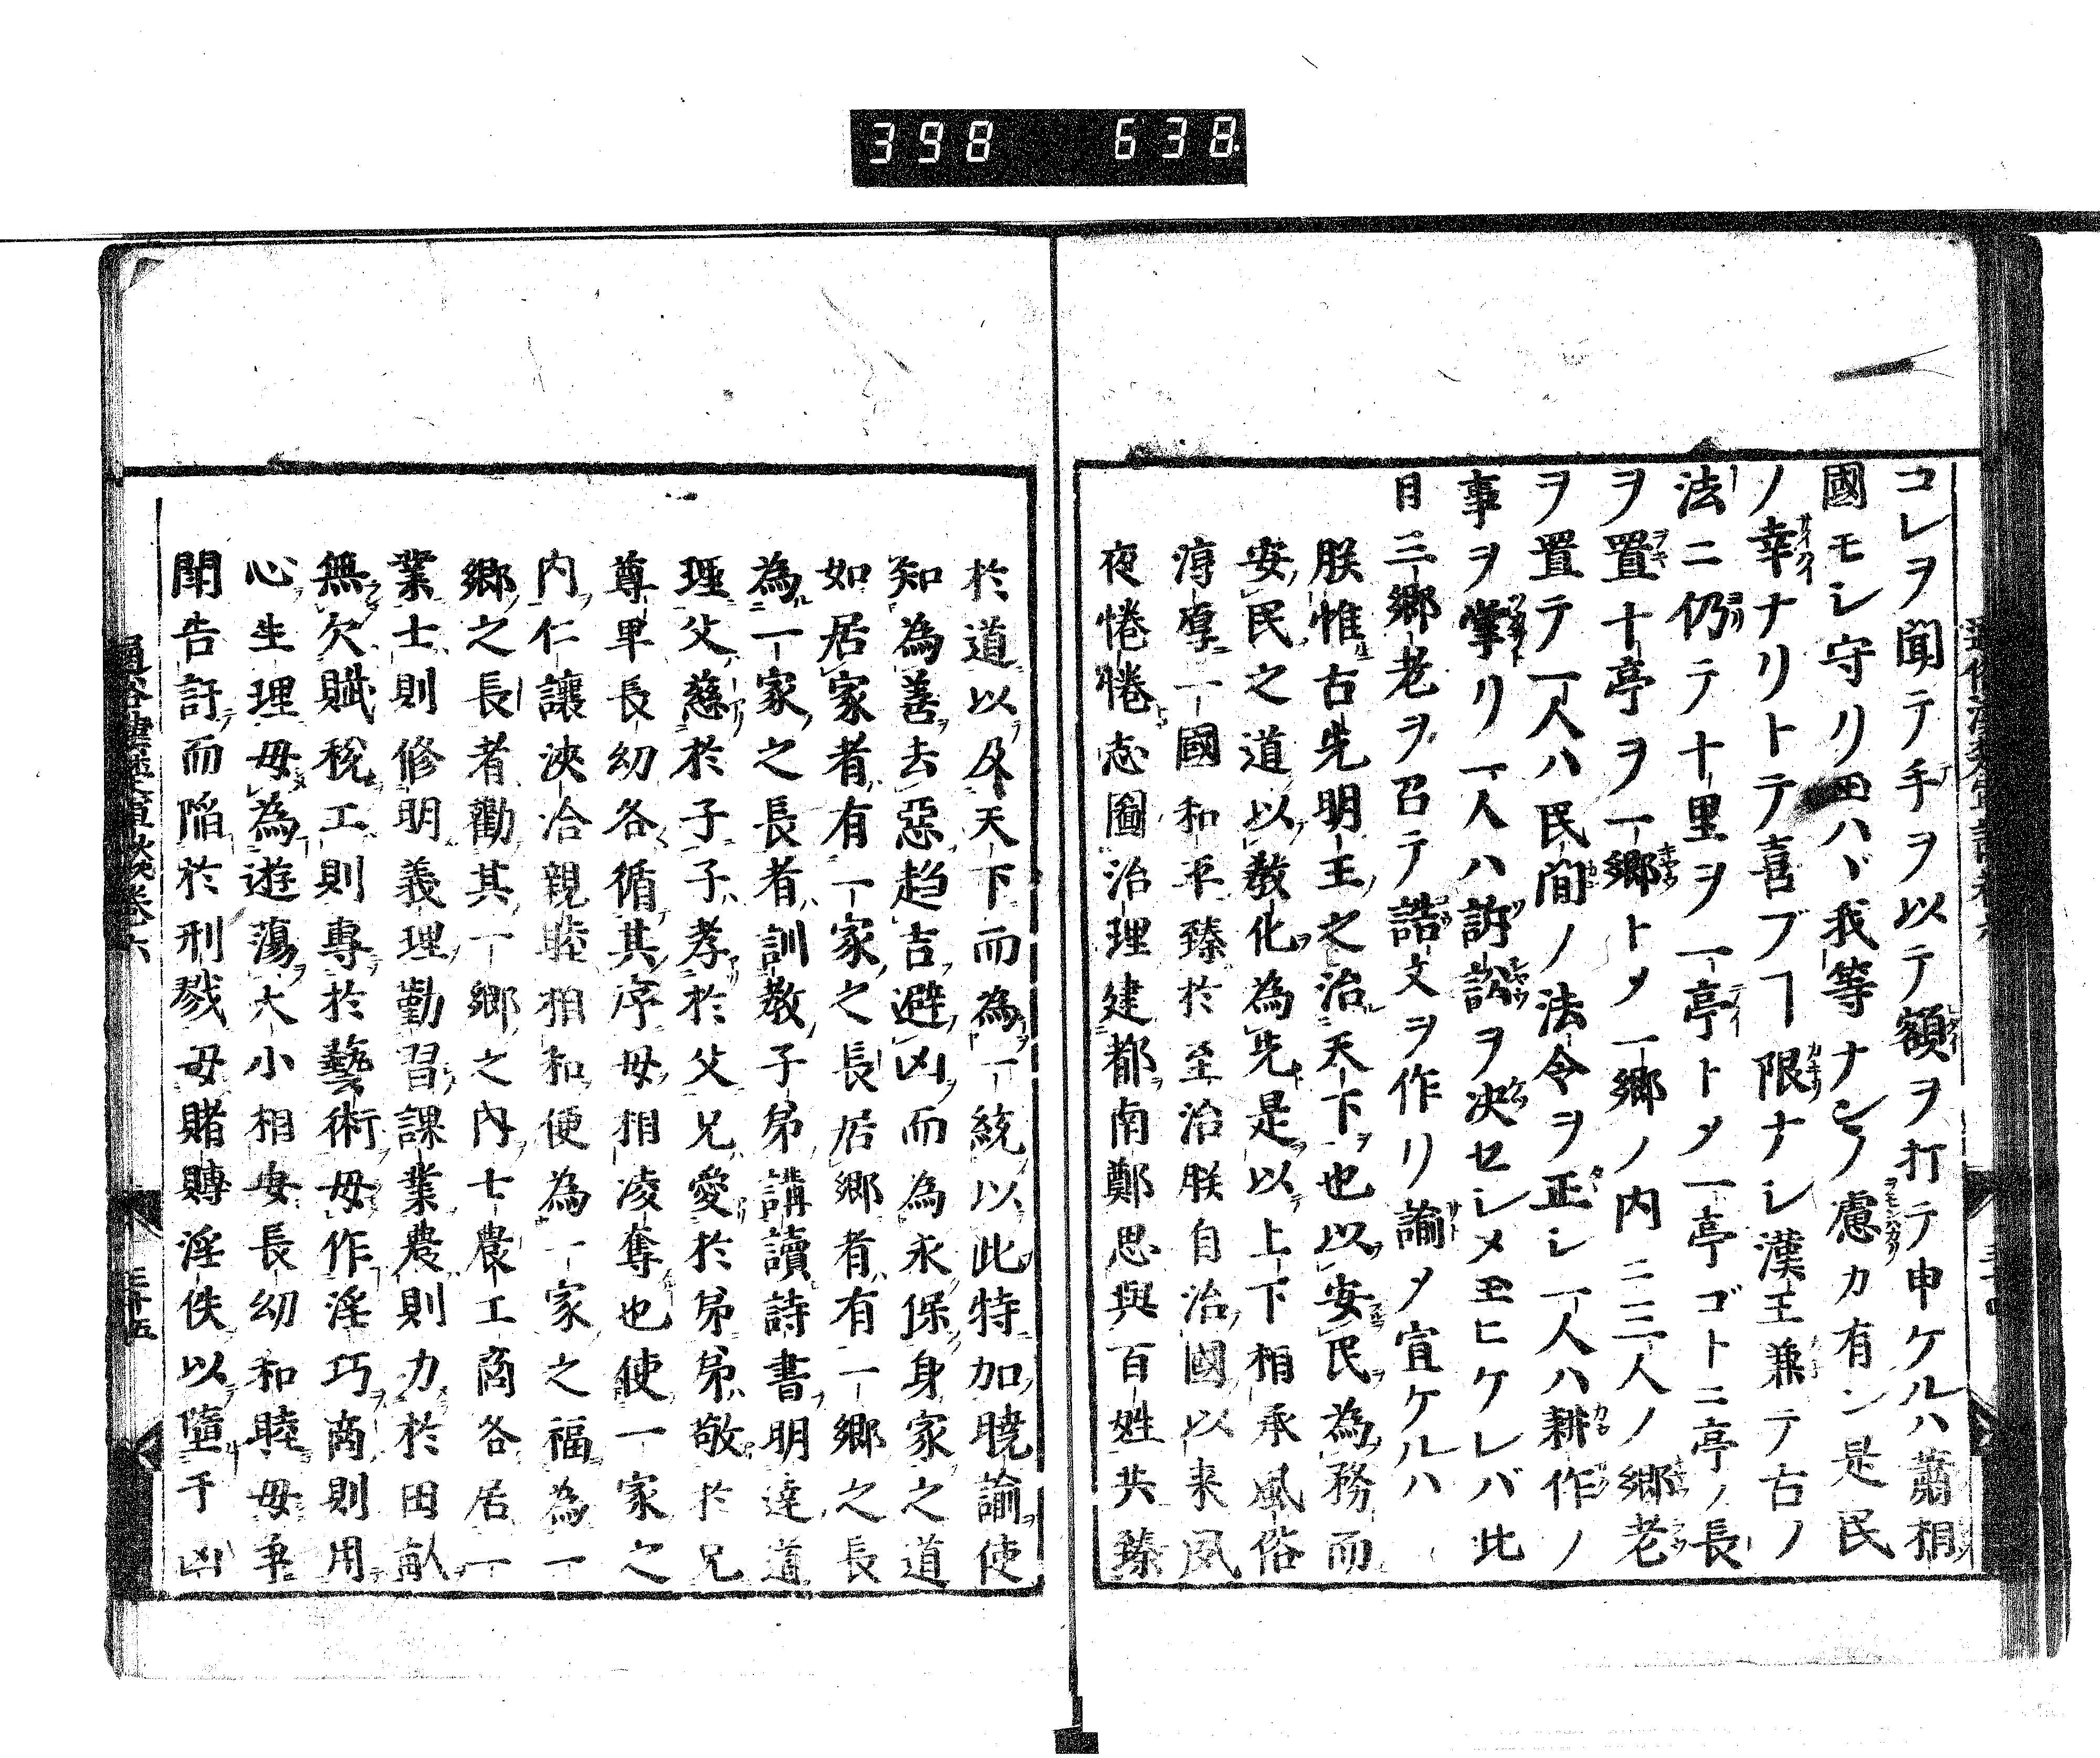 398 638
コレヲ聞テ手ヲ以テ額ヲ打テ申ケルハ蕭相
國モシ守リ玉ハヾ我等ナンノ慮カ有ン是民
ノ幸ナリトテ喜ブヿ限ナシ漢王兼テ古ノ
法ニ仍テ十里ヲ一亭トメ一亭ゴトニ亭ノ長
ヲ置十亭ヲ一郷トメ一郷ノ内ニ三人ノ郷老
ヲ置テ一人ハ民間ノ法令ヲ正シ一人ハ耕作ノ
事ヲ掌リ一人ハ訴訟ヲ决セシメ玉ヒケレバ此
日三郷老ヲ召テ誥文ヲ作リ諭メ宣ケルハ
朕惟古先明王之治天下也以安民為務而
安民之道以教化為先是以上下相承風俗
淳厚一國和平臻於至治朕自治國以来夙
夜惓惓志圖治理建都南鄭思與百姓共臻
於道以及天下而為一統以此特加曉諭使
知為善去惡趋吉避凶而為永保身家之道
如居家者有一家之長居郷者有一郷之長
為一家之長者訓教子弟講讀詩書明達道
理父慈於子子孝於父兄愛於弟弟敬於兄
尊卑長幼各循其序毋相凌奪也使一家之
内仁讓浹洽親睦相和便為一家之福為一
郷之長者勸其一郷之内士農工商各居一
業士則修明義理勤習課業農則力於田畝
無欠賦稅工則專於藝術毋作淫巧商則用
心生理毋為遊蕩大小相安長幼和睦毋乖
閗告訐而陥於刑戮毋賭賻淫佚以墮于凶
三十五